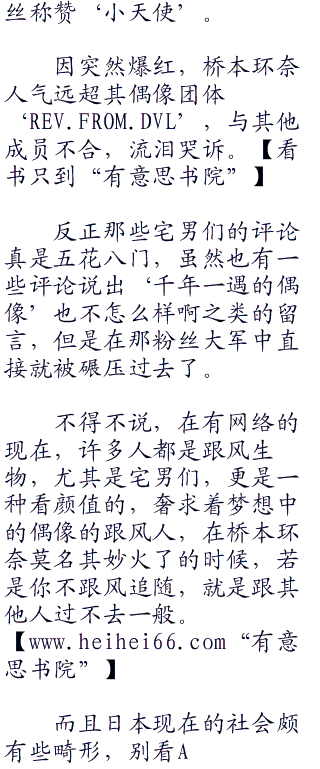 丝称赞‘小天使’。
因突然爆红，桥本环奈
人气远超其偶像团体
‘REV.FROM.DVL’，与其他
成员不合，流泪哭诉。【看
书只到“有意思书院”】
反正那些宅男们的评论
真是五花八门，虽然也有一
些评论说出‘千年一遇的偶
像’也不怎么样啊之类的留
言，但是在那粉丝大军中直
接就被碾压过去了。
不得不说，在有网络的
现在，许多人都是跟风生
物，尤其是宅男们，更是一
种看颜值的，奢求着梦想中
的偶像的跟风人，在桥本环
奈莫名其妙火了的时候，若
是你不跟风追随，就是跟其
他人过不去一般。
【www.heihei66.com“有意
思书院”】
而且日本现在的社会颇
有些畸形，别看A